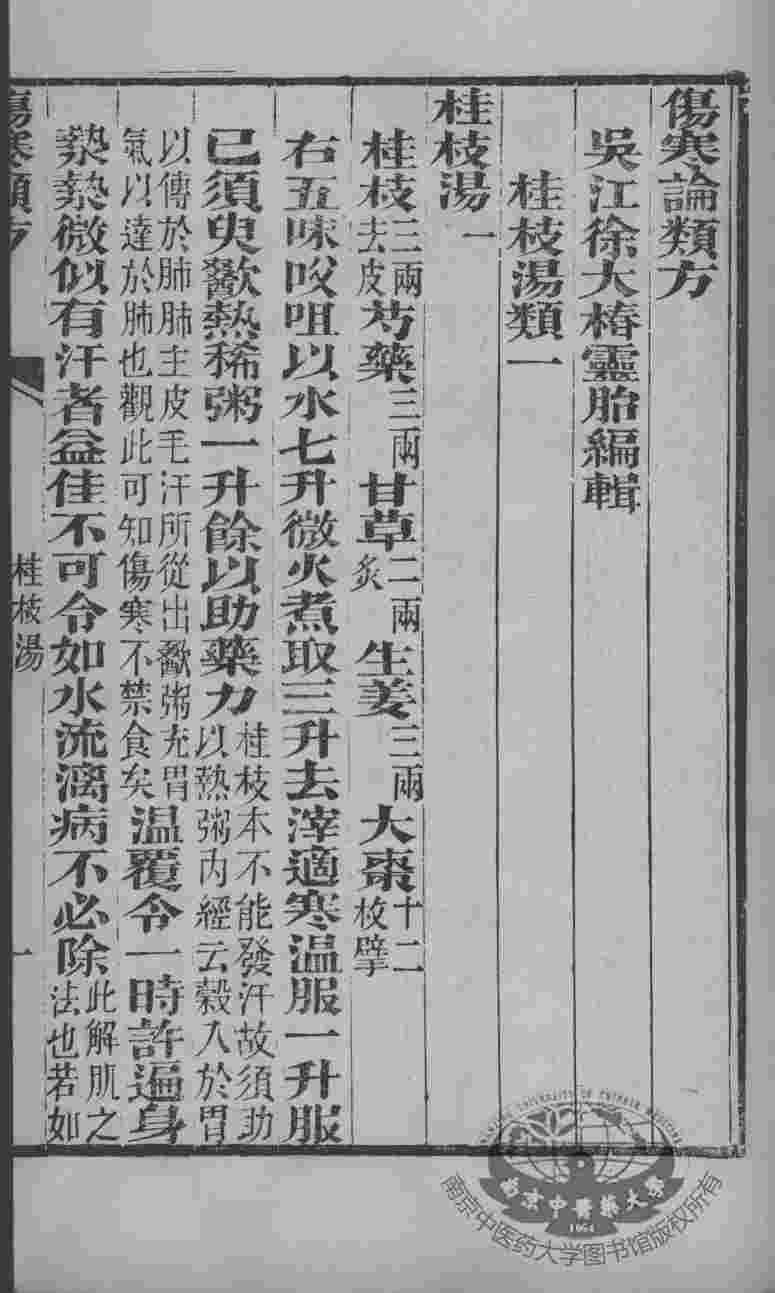 傷寒論類方
吳江徐大椿靈胎編輯
桂枝湯類一
桂枝湯一
桂枝三兩去皮芍藥三兩甘草二兩炙生姜三兩大棗十二枚擘
右五味㕮咀以水七升微火煮取三升去滓適寒温服一升服
已須臾歠熱稀粥一升餘以助藥力桂枝本不能發汗故須助以熱粥内經云穀入於胃
以傳於肺肺主皮毛汗所從出歠粥充胃氣以達於肺也觀此可知傷寒不禁食矣温覆令一時許遍身
漐漐微似有汗者益佳不可令如水流漓病不必除此解肌之法也若如
傷寒類方
桂枝湯
一
南京中醫藥大學
1954
南京中医药大学图书馆版权所有